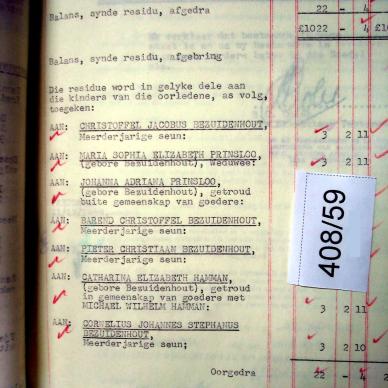 Balans, synde residu, afgedra 22 - 4
£1022 - 4 £10
Balans, synde residu, afgebring
Die residue word in gelyke dele aan
die kinders van die oorledene, as volg,
toegeken:
AAN: CHRISTOFFEL JACOBUS BEZUIDENHOUT,
Meerderjarige seun: 3 2 11
AAN: MARIA SOPHIA ELIZABETH PRINSLOO,
(gebore Bezuidenhout), Weduwee: 3 2 11
AAN: JOHANNA ADRIANA PRINSLOO,
(gebore Bezuidenhout), getroud
buite gemeenskap van goedere:
AAN: BAREND CHRISTOFFEL BEZUIDENHOUT,
Meerderjarige seun:
AAN: PIETER CHRISTIAAN BEZUIDENHOUT,
Meerderjarige seun:
AAN: CATHARINA ELIZABETH HAMMAN,
(gebore Bezuidenhout), getroud
in gemeenskap van goedere met
MICHAEL WILHELM HAMMAN: 3 2 11
AAN: CORNELIUS JOHANNES STEPHANUS
BEZUIDENHOUT,
Meerderjarige seun; 3 2 10
Oorgedra 22 - 4
408/59